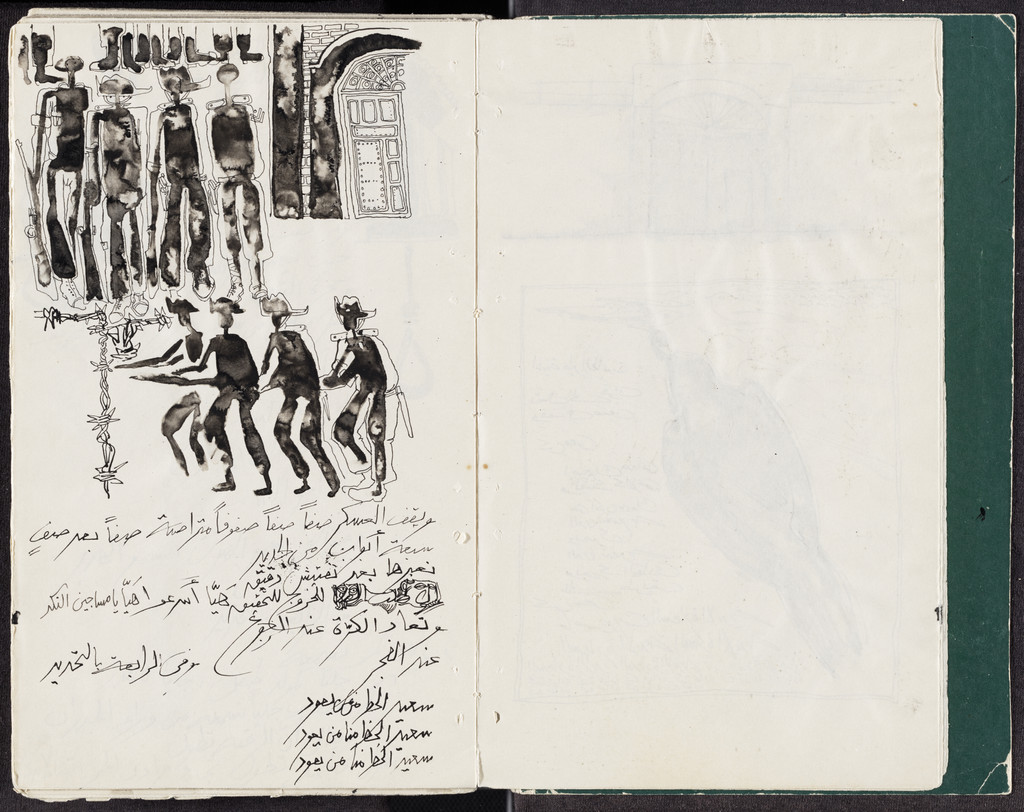 ويقف العسكر صفاً صفاً صفوفاً متراصة صفاً بعد صفٍ
سبعة أبواب من الحديد
نعبرها بعد تفتيش دقيق
للخروج للتحقيق هيّا أسرعوا هيّا يا مساجين النكد
وتعاد الكرّة عند الرجوع
عند الفجر وفي الرابعة بالتحديد
سعيد الحظ من يعود
سعيد الحظ منا من يعود
سعيد الحظ منا من يعود